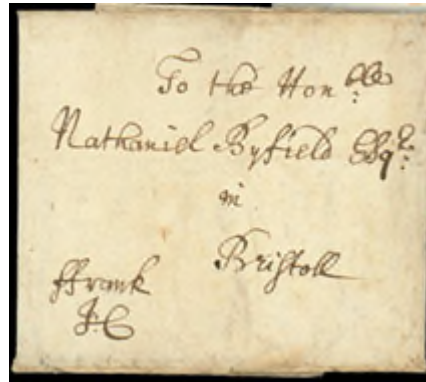 To the Hon:ble
Nathaniel Byfield Esqr:
in
Bristoll
ffrank